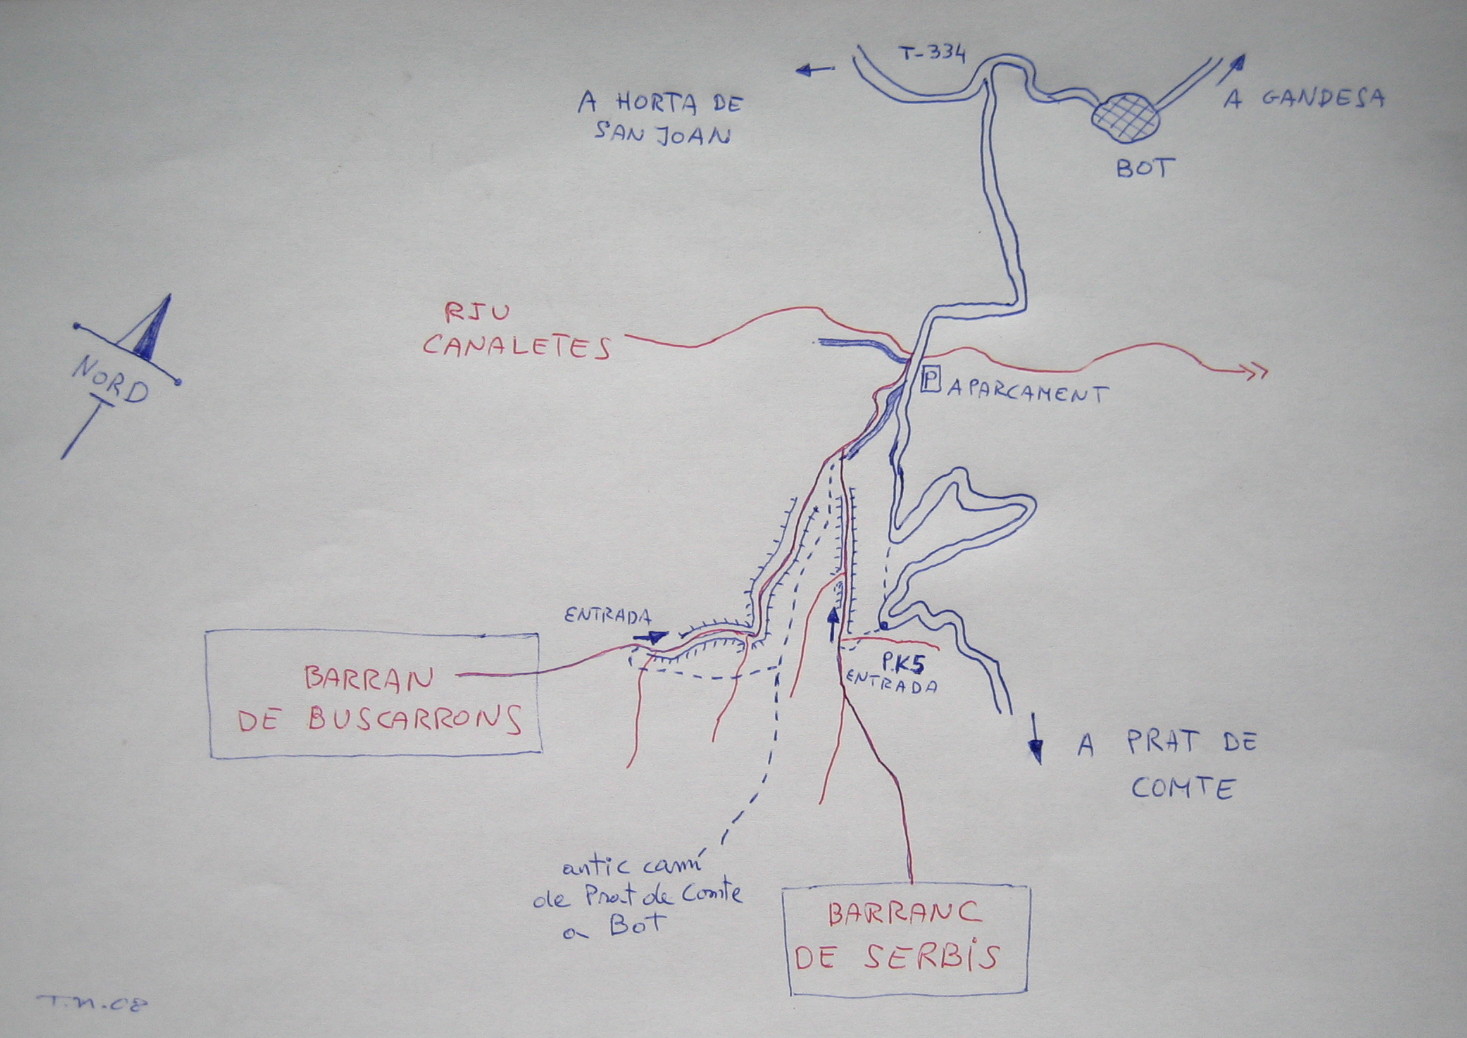 T-334
A HORTA DE
SAN JOAN
A GANDESA
BOT
RIU
CANALETES
NORD
P APARCAMENT
ENTRADA
BARRAN
DE BUSCARRONS
P.K5
ENTRADA
A PRAT DE
COMTE
antic camí
de Prat de Comte
a BOT
BARRANC
DE SERBIS
T.N.08